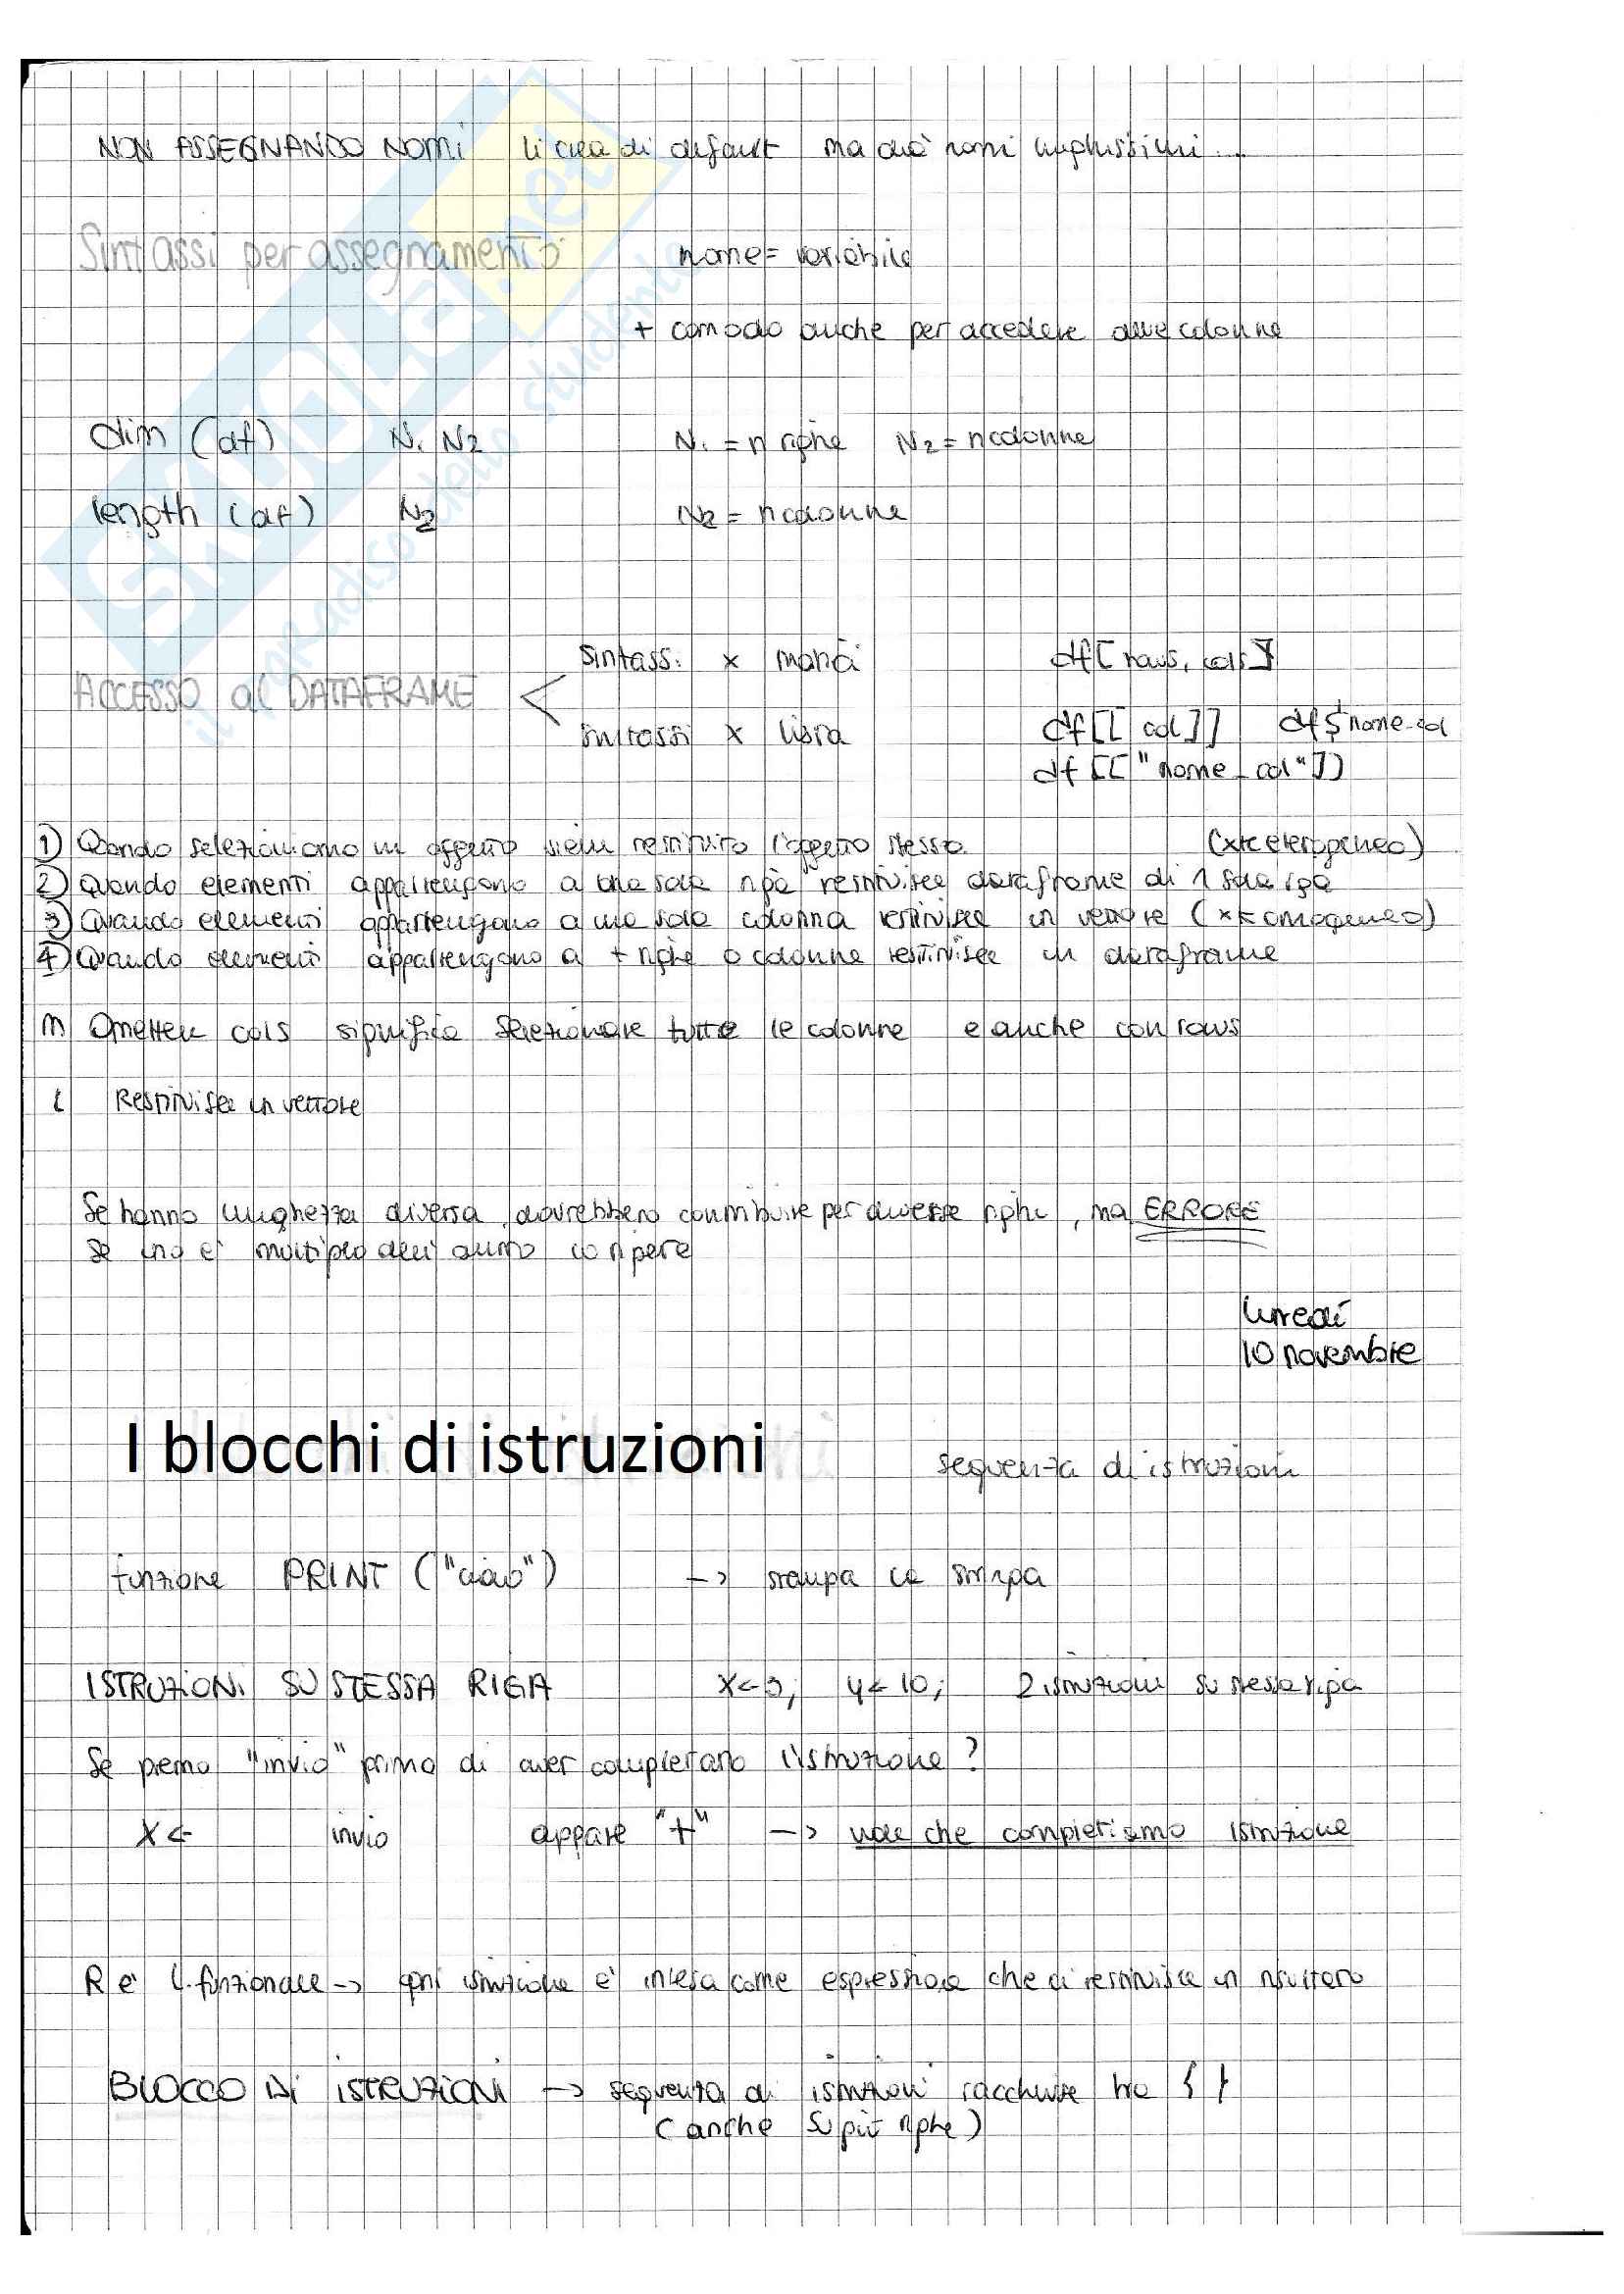 NON ASSEGNANDO NOMI li crea di default ma dà nomi lunghissimi...
Sintassi per assegnamento: nome = variabile
+ comodo anche per accedere alle colonne
dim (df) N1 N2 N1 = n righe N2 = n colonne
length (df) N2 N2 = n colonne
sintassi x matrici df[rows, cols]
ACCESSO al DATAFRAME
sintassi x lista df[[col]] df$nome_col
df[["nome_col"]]
1) Quando selezioniamo un oggetto viene restituito l'oggetto stesso
2) Quando elementi appartengono a una sola riga restituisce dataframe di 1 sola riga (xké eterogeneo)
3) Quando elementi appartengono a una sola colonna restituisce un vettore (xké omogeneo)
4) Quando elementi appartengono a + righe o colonne restituisce un dataframe
m Omettere cols significa selezionare tutte le colonne e anche con rows
l Restituisce un vettore
Se hanno lunghezza diversa, dovrebbero contribuire per diverse righe, ma ERRORE
Se uno è multiplo dell'altro lo ripete
lunedì
10 novembre
I blocchi di istruzioni sequenza di istruzioni
funzione PRINT ("ciao") -> stampa la stringa
ISTRUZIONI SU STESSA RIGA x<-3; y<-10; 2 istruzioni su stessa riga
Se premo "invio" prima di aver completato l'istruzione?
x <- invio appare "+" -> vuole che completiamo istruzione
R è l. funzionale -> ogni istruzione è intesa come espressione che ci restituisce un risultato
BLOCCO DI ISTRUZIONI -> sequenza di istruzioni racchiuse tra { }
(anche su più righe)
SKUOLA.net
il paradiso dello studente